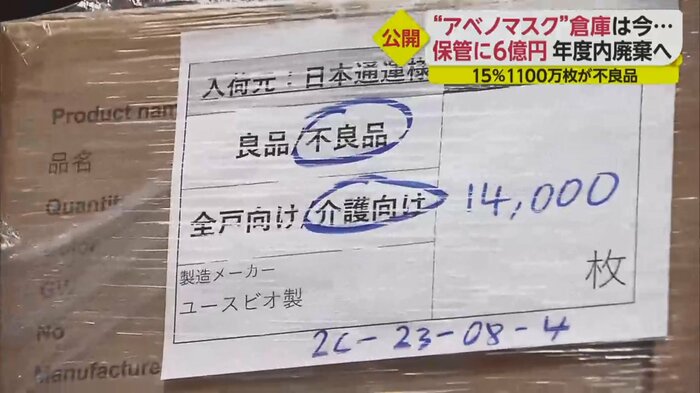 公開
“アベノマスク”倉庫は今…
保管に6億円 年度内廃棄へ
15%1100万枚が不良品
入荷元：日本通運様
Product name
良品/不良品
品名
Quantit
全戸向け/介護向け
14,000
枚
製造メーカー
ユースビオ製
No
Manufacture
2C-23-08-4